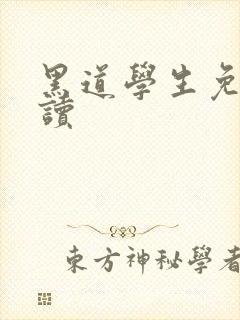 黑道學生免
讀
東方神秘學者